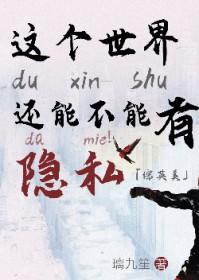 这个世界
du xin shu
还能不能有
da mie!
隐私「综英美」
璃九笙 著